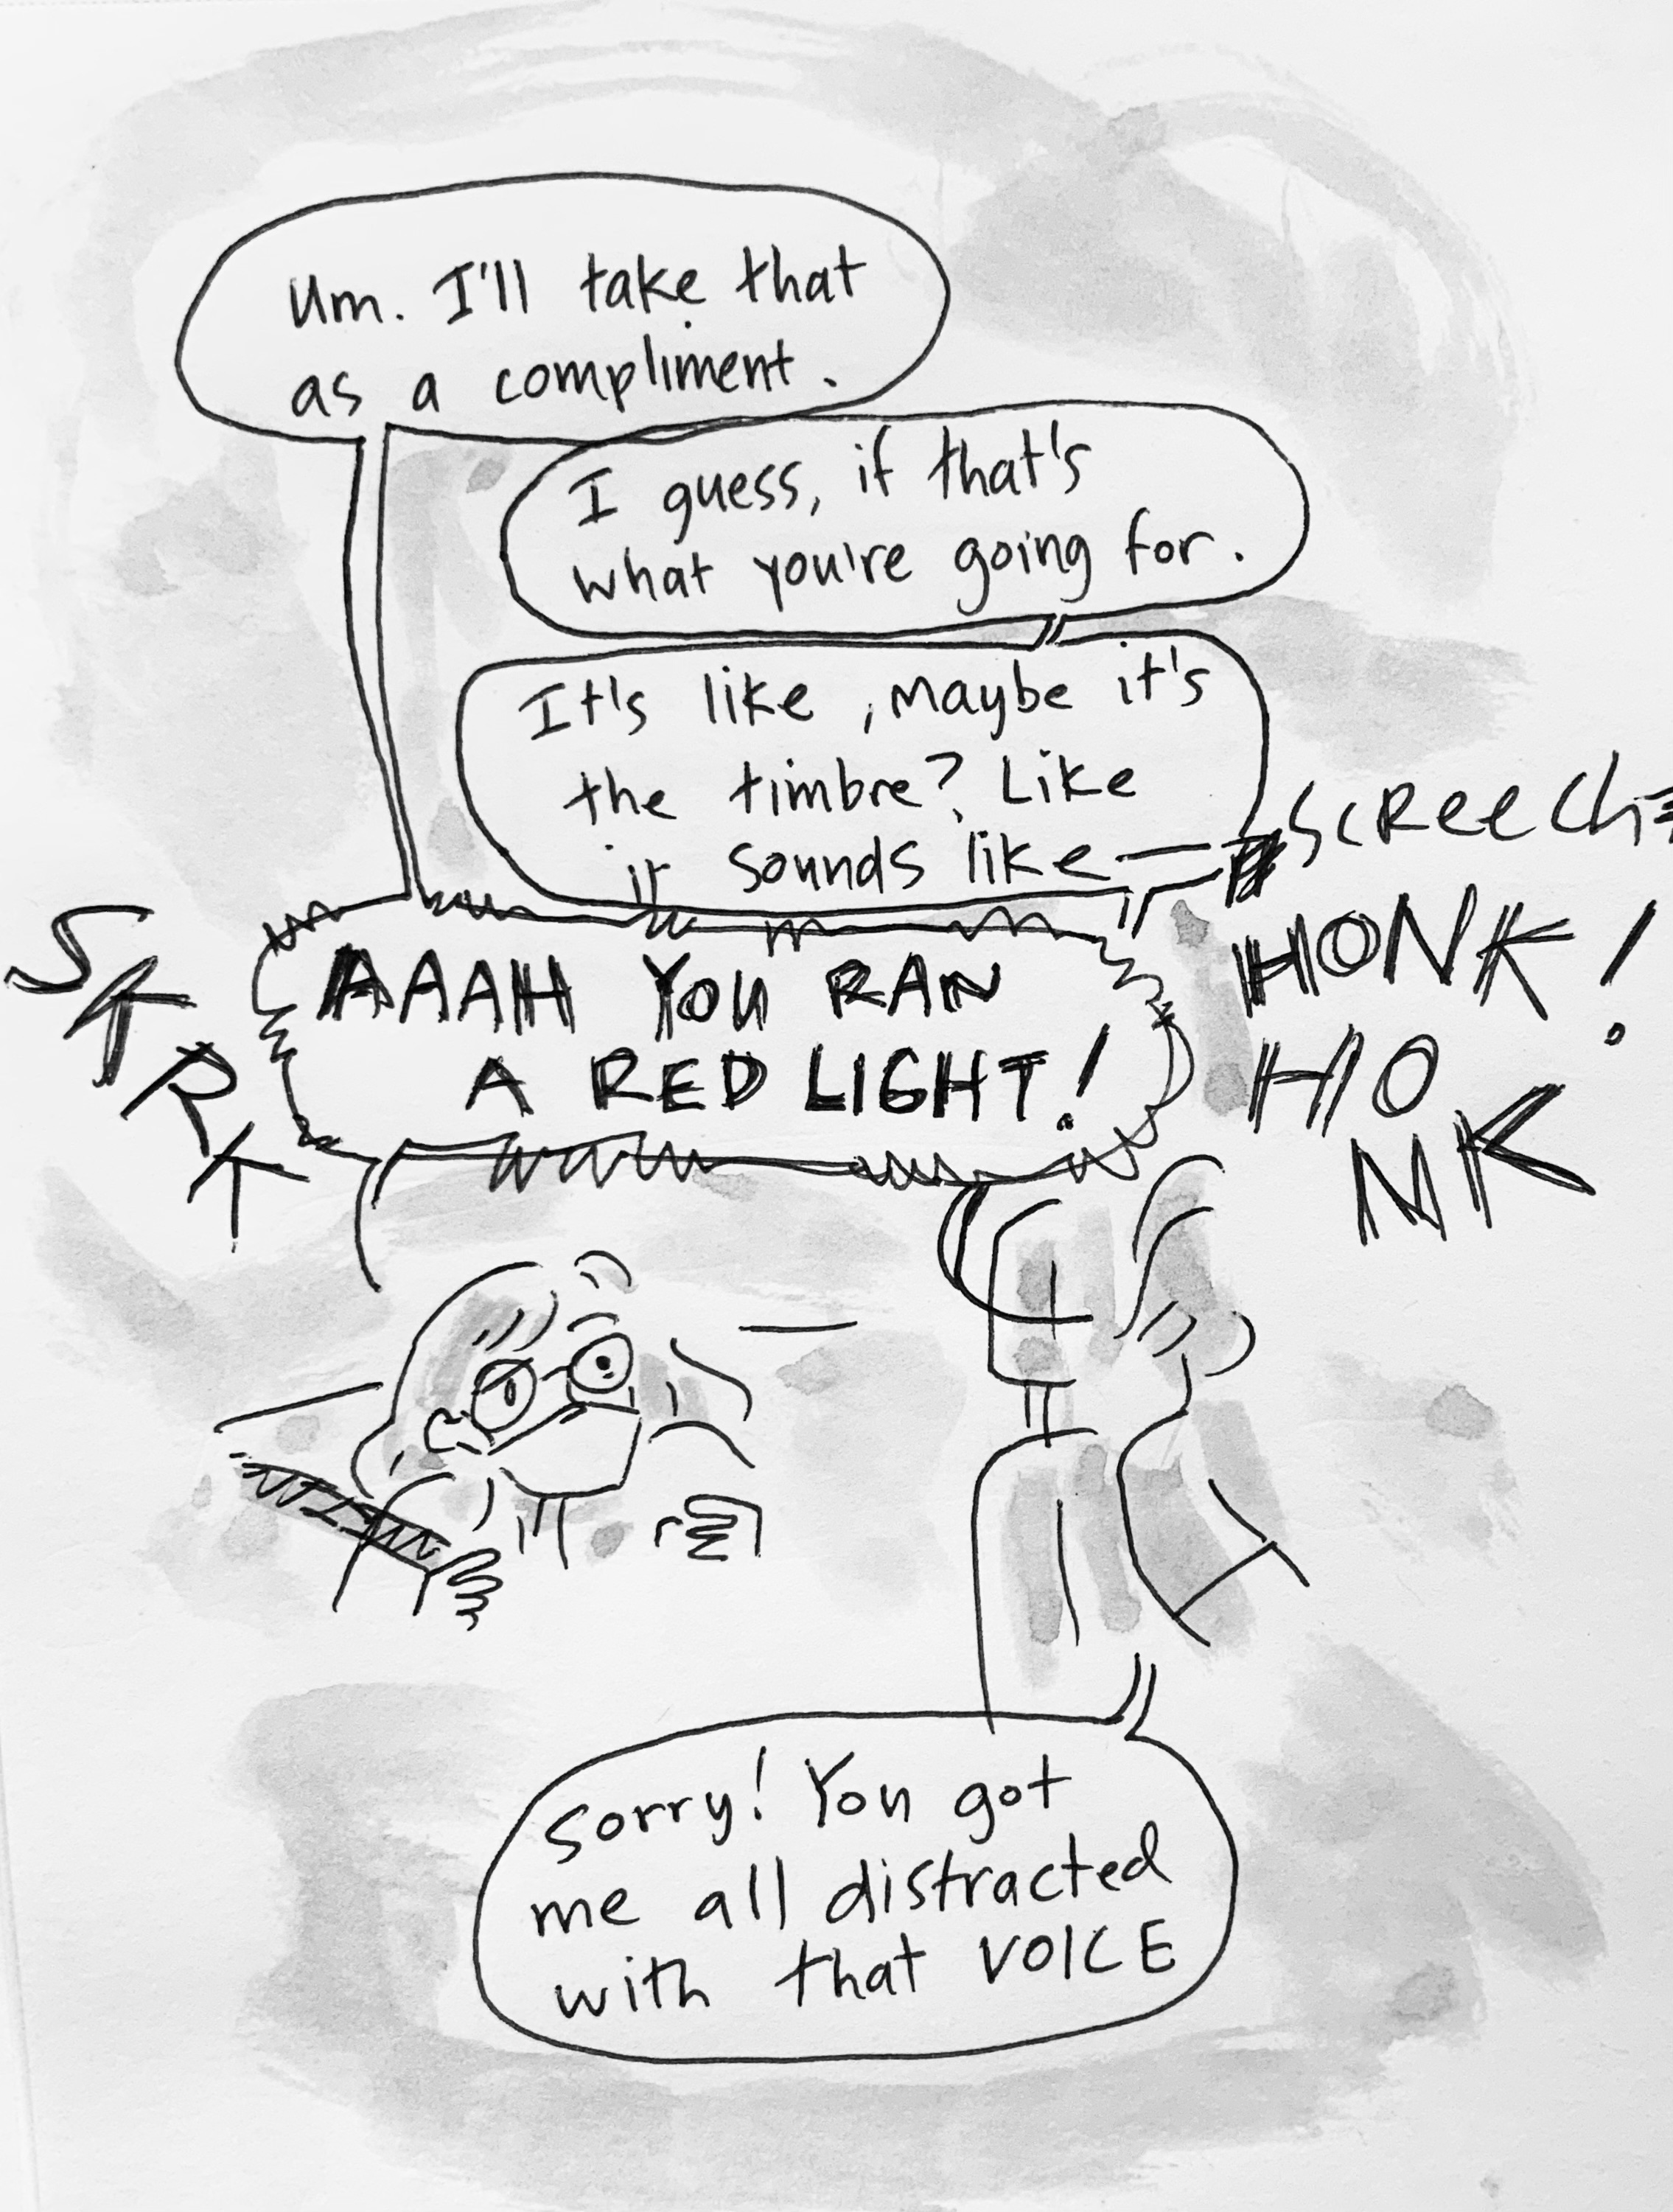 Um. I'll take that
as a compliment.
I guess, if that's
what you're going for.
It's like, maybe it's
the timbre? Like
it sounds like—
SCREECH
SKRK
AAAH YOU RAN
A RED LIGHT!
HONK!
HO
NK
Sorry! You got
me all distracted
with that VOICE